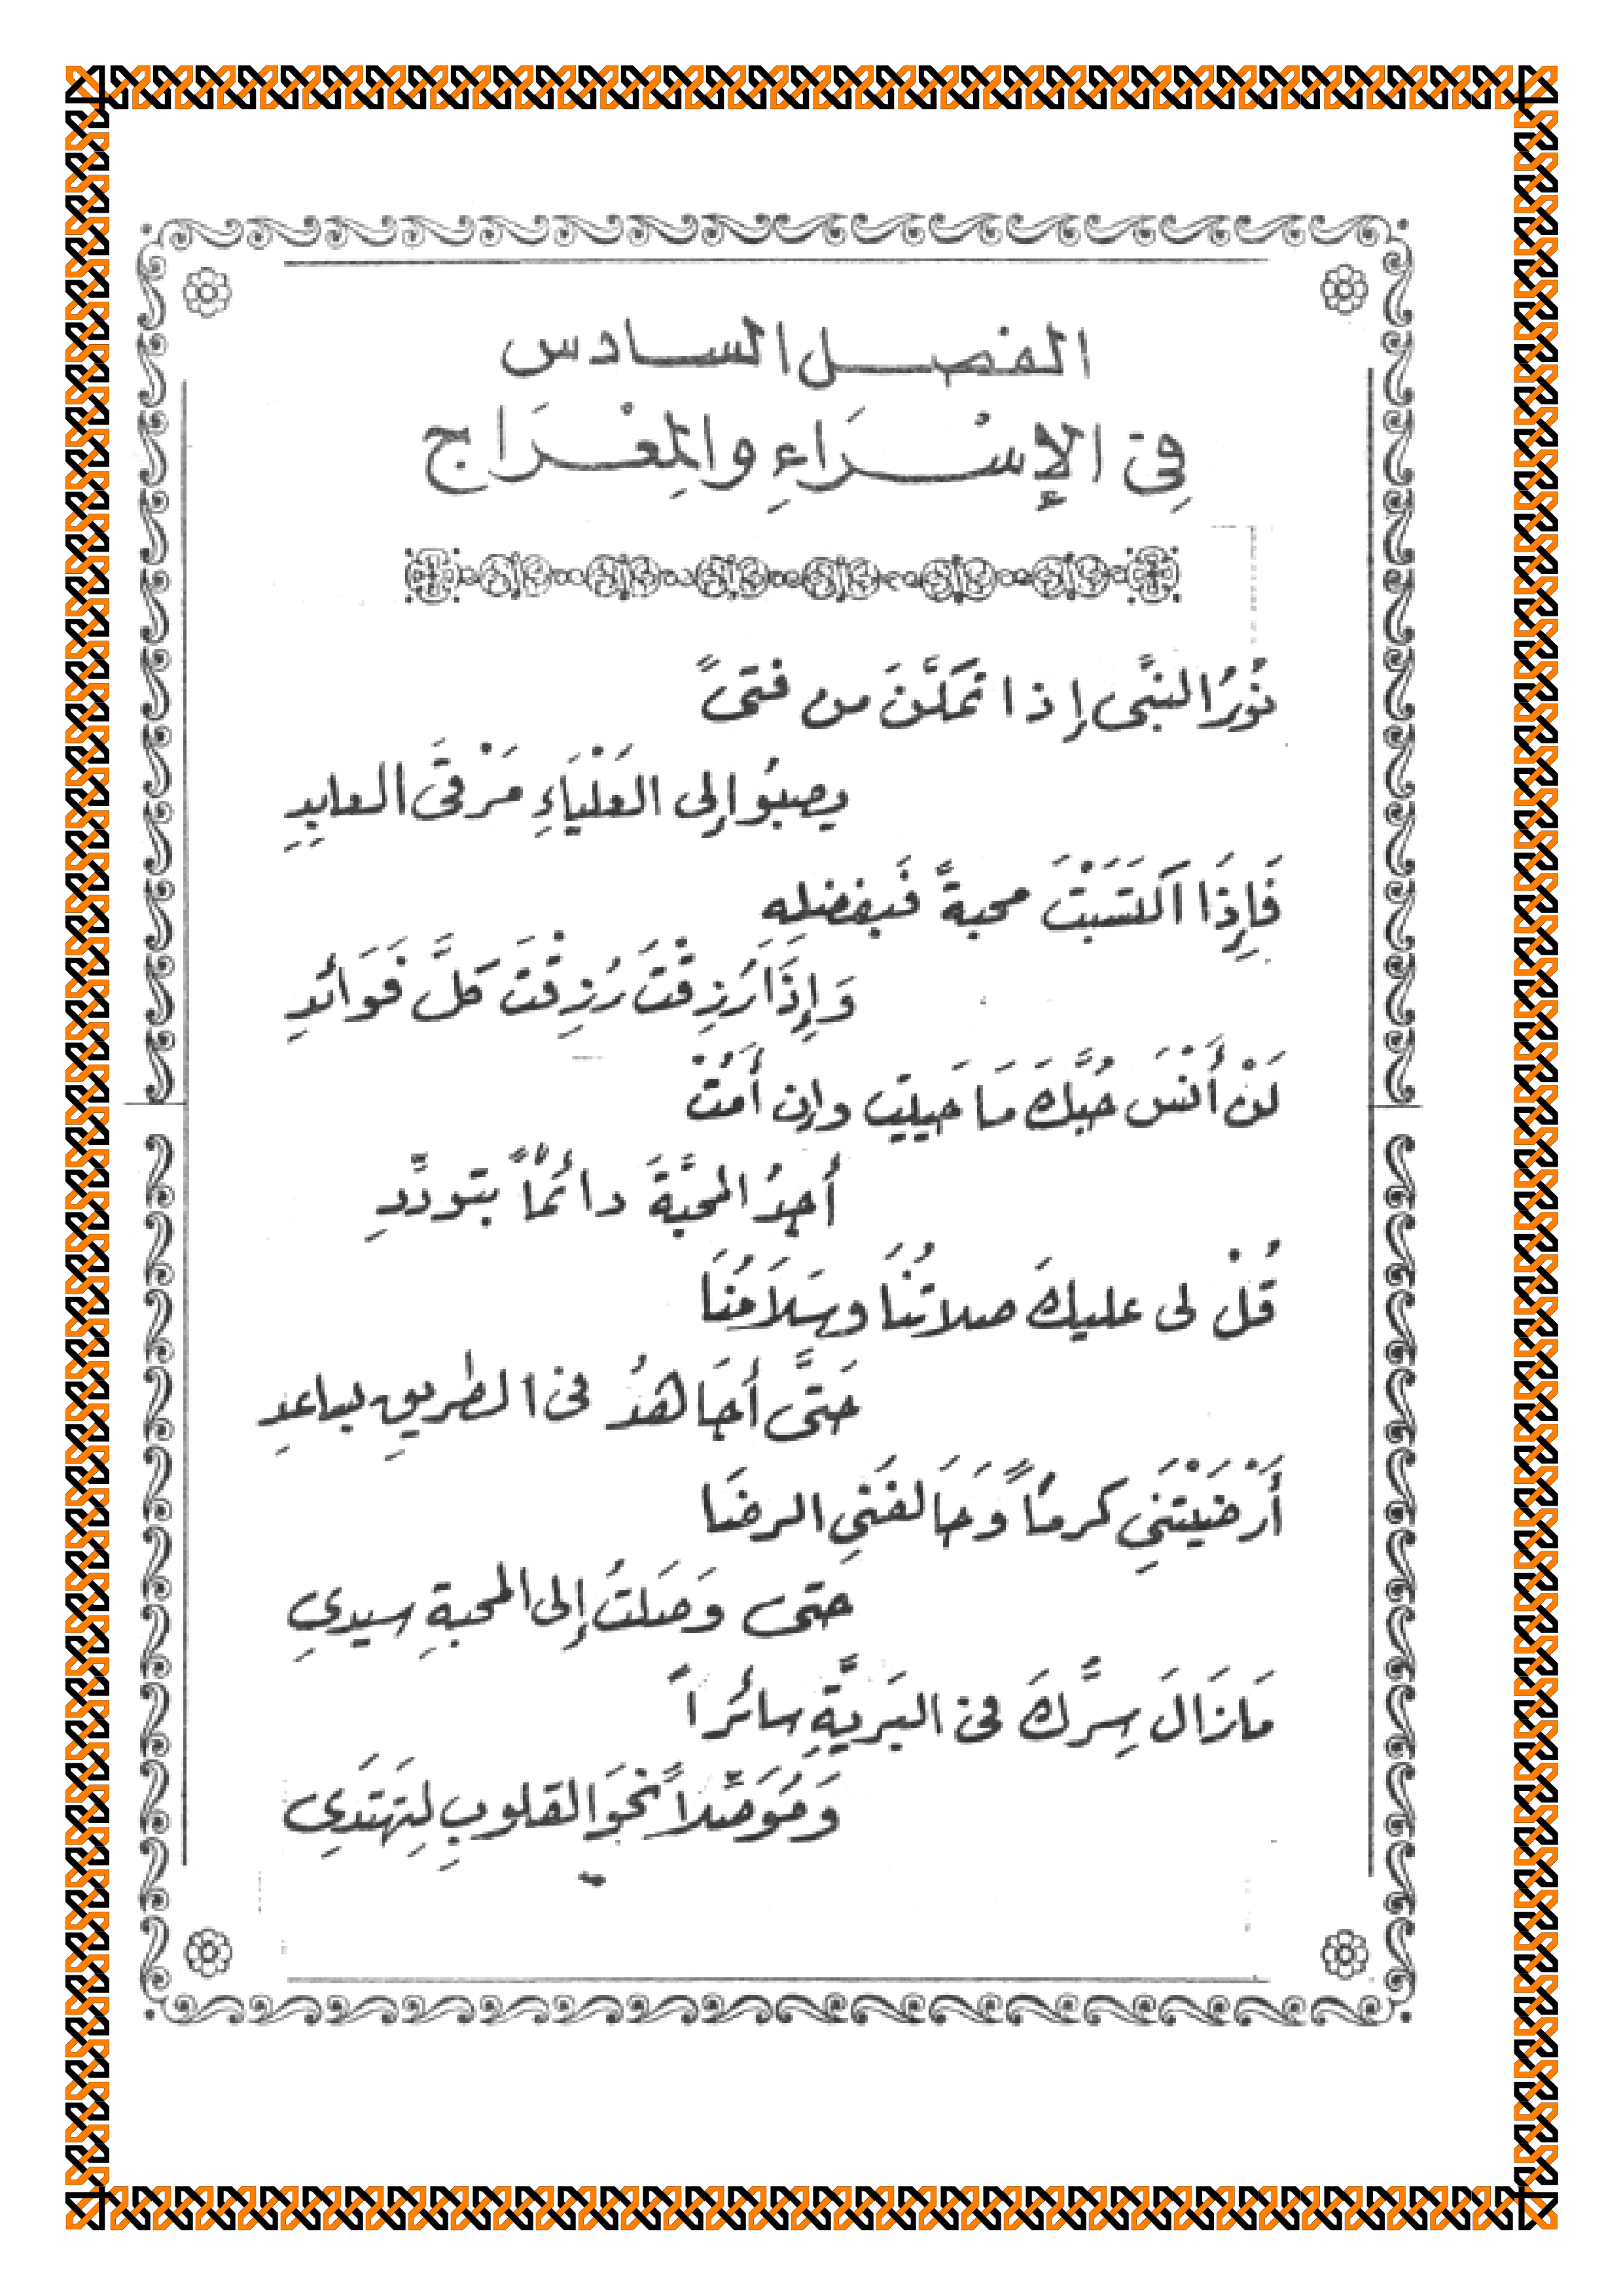 الفصل السادس
فِى الإِسْرَاءِ والمِعْرَاج
نُورُ النبَّى إِذا تمَكَّنَ من فتىً
يصبُوا إِلى العَلْيَاءِ مَرْقَى العابِدِ
فَإِذَا اكتسَبْتَ محبةً فَبِفضلِه
وَإِذَا رُزِقْتَ رُزِقْتَ كلَّ فَوَائدِ
لَنْ أَنْسَ حُبَّكَ مَا حَييت وإن أَمُتْ
أَجِدُ المحَبَّةَ دائمُاً بتودِّدِ
قُلْ لى عليكَ صلاتُنَا وسَلاَمُنَا
حَتَّى أُجَاهدُ فى الطريقِ بساعدِ
أَرْضَيْتَنِي كرماً وَحَالفَنِي الرضَا
حتى وَصَلتُ إِلى المحبةِ سيدىِ
مَازَالَ سِرُّكَ فى البَريَّةِ سائَراً
وَمُوَصِّلاً نحوَ القلوبِ لِتَهتَدِى